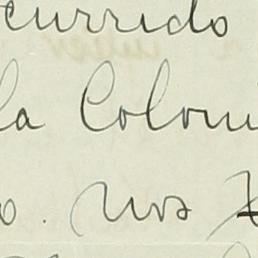 currido
la Coloni
o. Nos